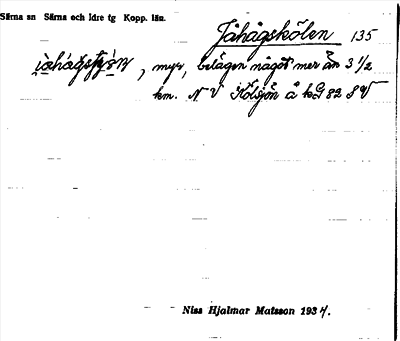 Särna sn Särna och Idre tg Kopp. län.
Jåhågskölen 135
, myr, belägen något mer än 3 1/2
km. N V Kölsjön å kG 82 SV
Niss Hjalmar Matsson 1934.